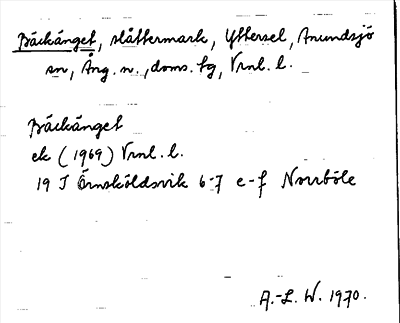 Bäckänget, slåttermark, Yttersel, Anundsjö
sn, Ång. n., doms. tg, Vrnl. l.
Bäckänget
ek (1969) Vrnl. l.
19 J Örnsköldsvik 6-7 e-f Norrböle
A.-L. W. 1970.